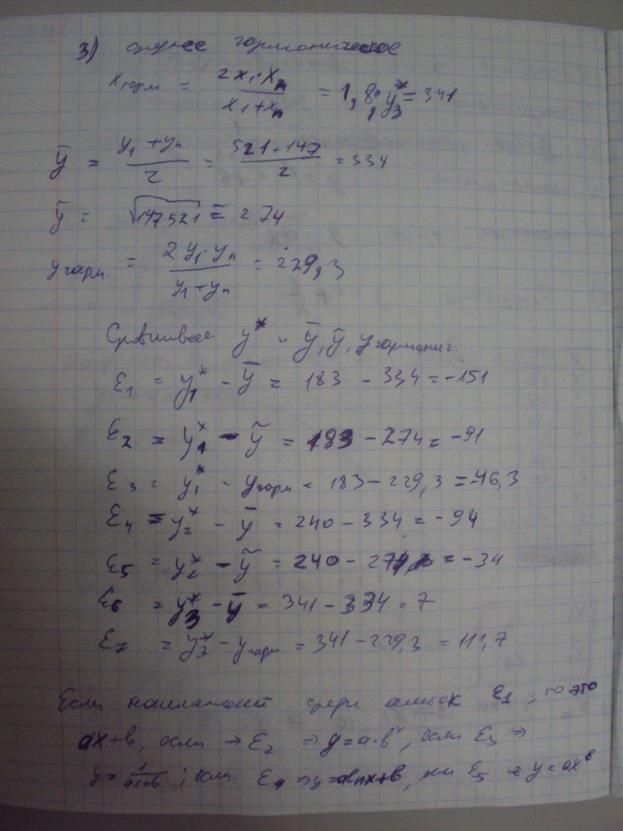 3) среднее гармоническое
x гарм = 2x₁·xₙ / x₁+xₙ = 1,8; y₃* = 341
ȳ = y₁+yₙ / 2 = 521+147 / 2 = 334
ỹ = √147521 = 274
y гарм. = 2y₁·yₙ / y₁+yₙ = 229,3
Сравниваем y* и ȳ, ỹ, y гармонич.
ε₁ = y₁* - ȳ = 183 - 334 = -151
ε₂ = y₁* - ỹ = 183 - 274 = -91
ε₃ = y₁* - y гарм = 183 - 229,3 = -46,3
ε₄ = y₂* - ȳ = 240 - 334 = -94
ε₅ = y₂* - ỹ = 240 - 274 = -34
ε₆ = y₃* - ȳ = 341 - 334 = 7
ε₇ = y₃* - y гарм = 341 - 229,3 = 111,7
Если наименьшая среди ошибок ε₁, то это
ax+b, если → ε₂ ⇒ y = a·bˣ, если ε₃ ⇒
y = 1/ax+b; если ε₄ ⇒ y = alnx+b, или ε₅ ⇒ y = axᵇ